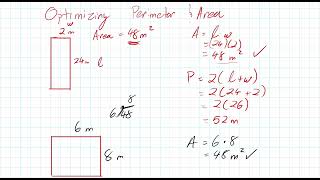 Optimizing Perimeter & Area
w
2 m
Area = 48 m²
24 m l
A = l · w
= (24)(2)
= 48 m² ✓
P = 2(l + w)
= 2(24 + 2)
= 2(26)
= 52 m
8
6)48
6 m
8 m
A = 6 · 8
= 48 m² ✓